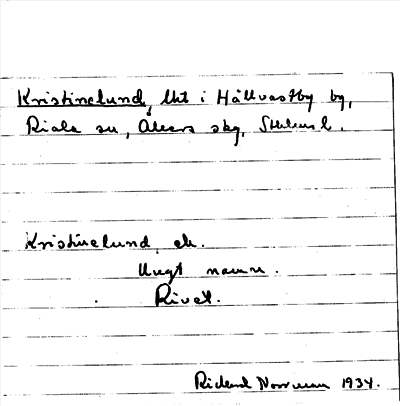 Kristinelund, lht i Hållvastby by,
Riala sn, Åkers skg, Sthlms l.
Kristinelund, ek.
Ungt namn.
Rivet.
Rickard Norrman 1934.